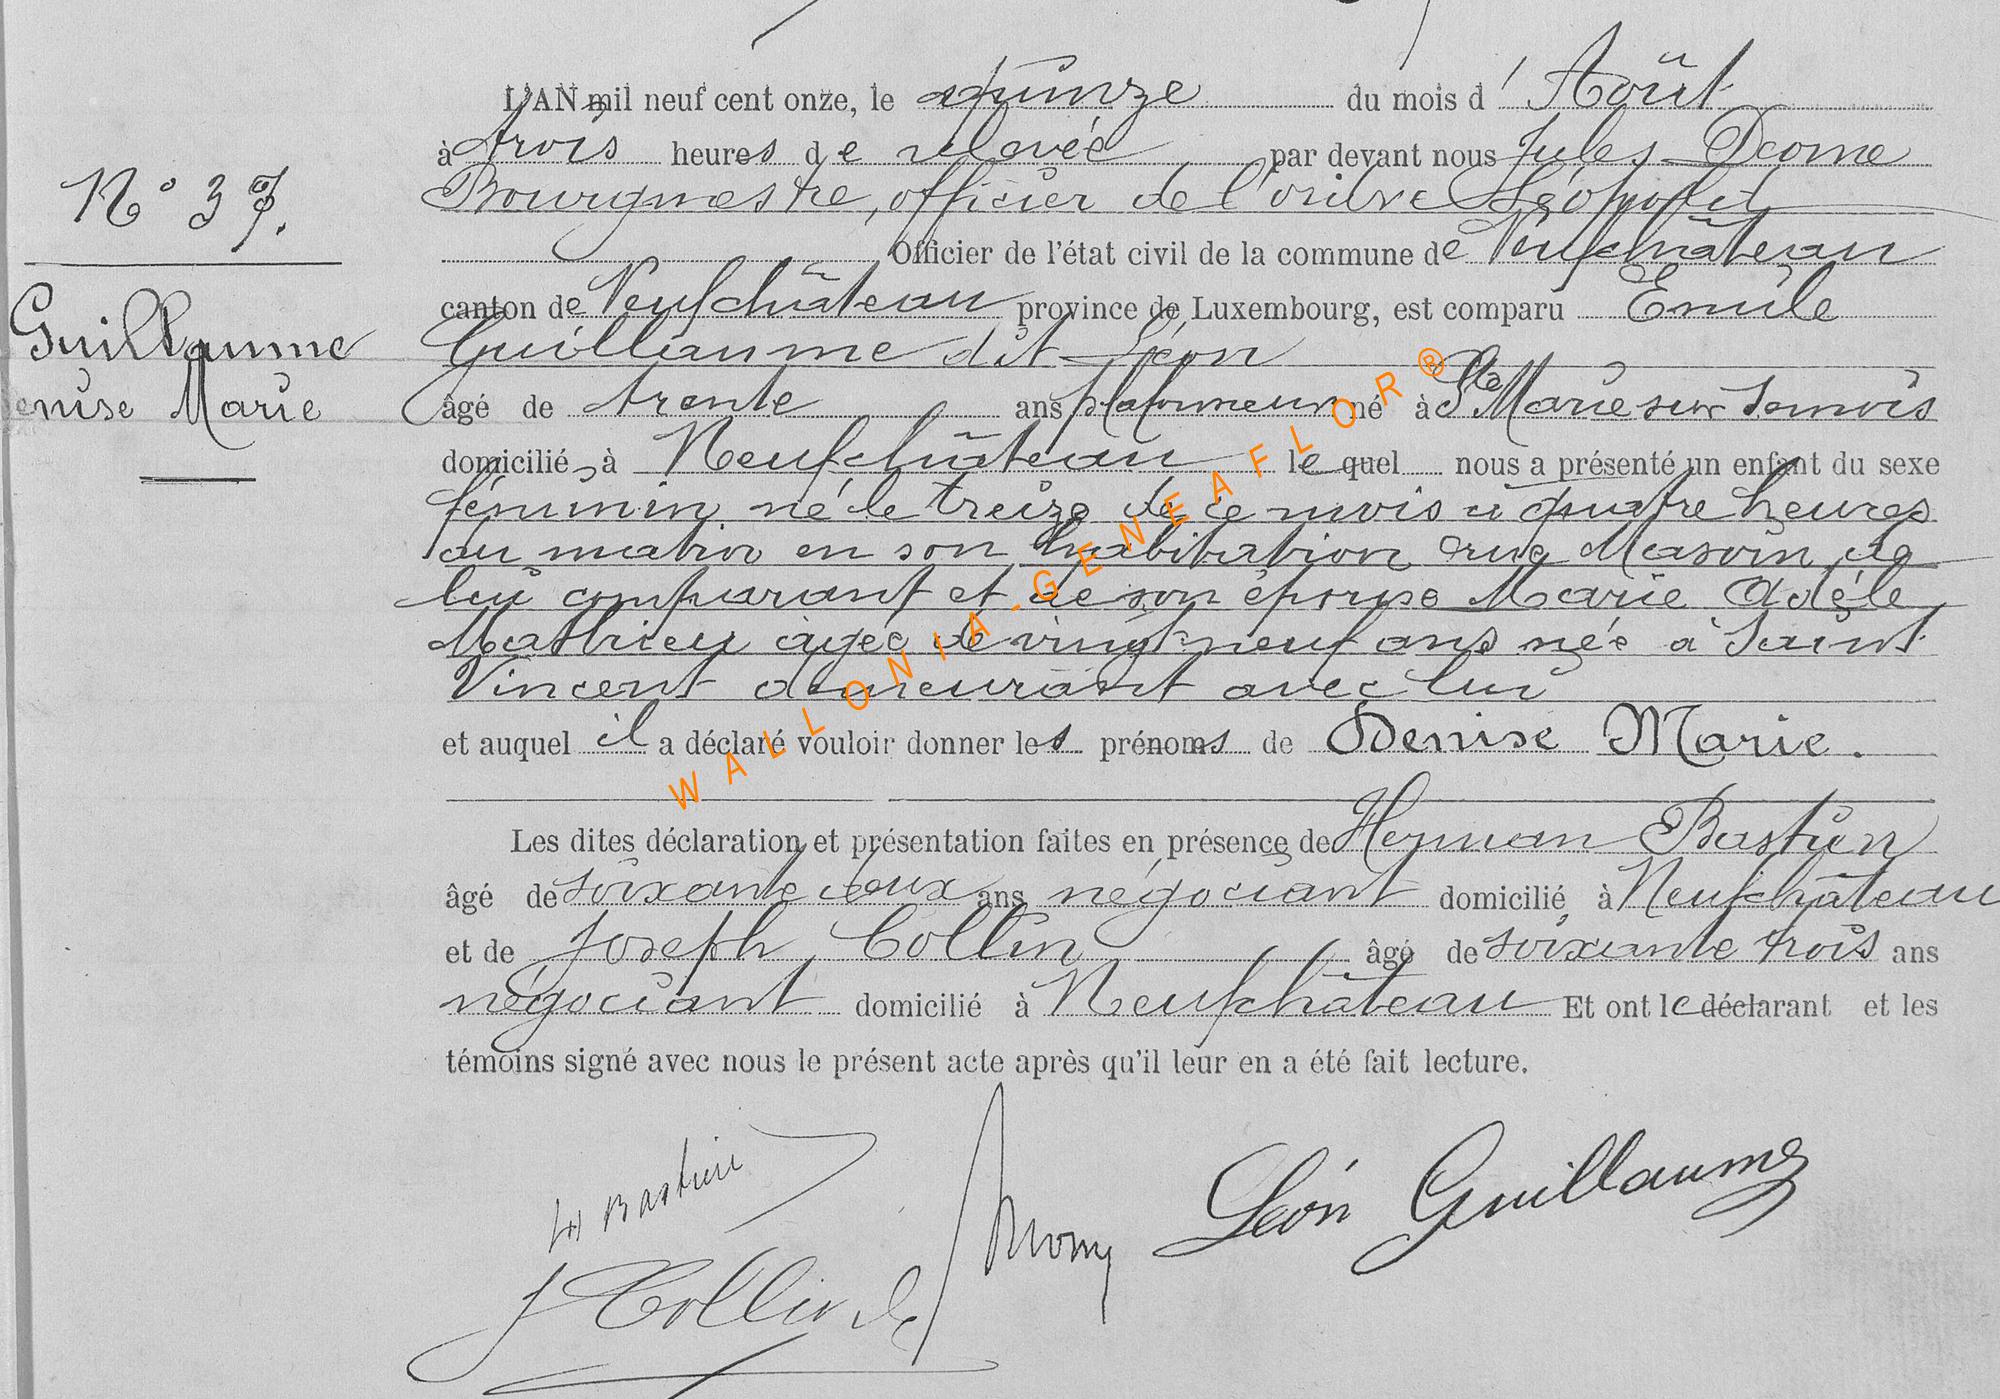 L'AN mil neuf cent onze, le quinze du mois d'Août
à trois heures de relevée par devant nous Jules
Bourgmestre, officier de l'ordre Léopold
Officier de l'état civil de la commune de Neufchâteau
canton de Neufchâteau province de Luxembourg, est comparu Emile
Guillaume dit Léon
âgé de trente ans plafonneur né à Ste Marie sur Semois
domicilié à Neufchâteau lequel nous a présenté un enfant du sexe
féminin né le treize de ce mois à quatre heures
du matin en son habitation rue Masoin, de
lui comparant et de son épouse Marie Adèle
Mathieu âgée de vingt neuf ans née à Saint
Vincent demeurant avec lui
et auquel il a déclaré vouloir donner les prénoms de Denise Marie.
Les dites déclaration et présentation faites en présence de Herman Bastien
âgé de soixante deux ans négociant domicilié à Neufchâteau
et de Joseph Collin âgé de soixante trois ans
négociant domicilié à Neufchâteau Et ont le déclarant et les
témoins signé avec nous le présent acte après qu'il leur en a été fait lecture.
N° 37.
Guillaume
Denise Marie
H Bastien
Léon Guillaume
J Collin
WALLONIA-GENEAFLOR®